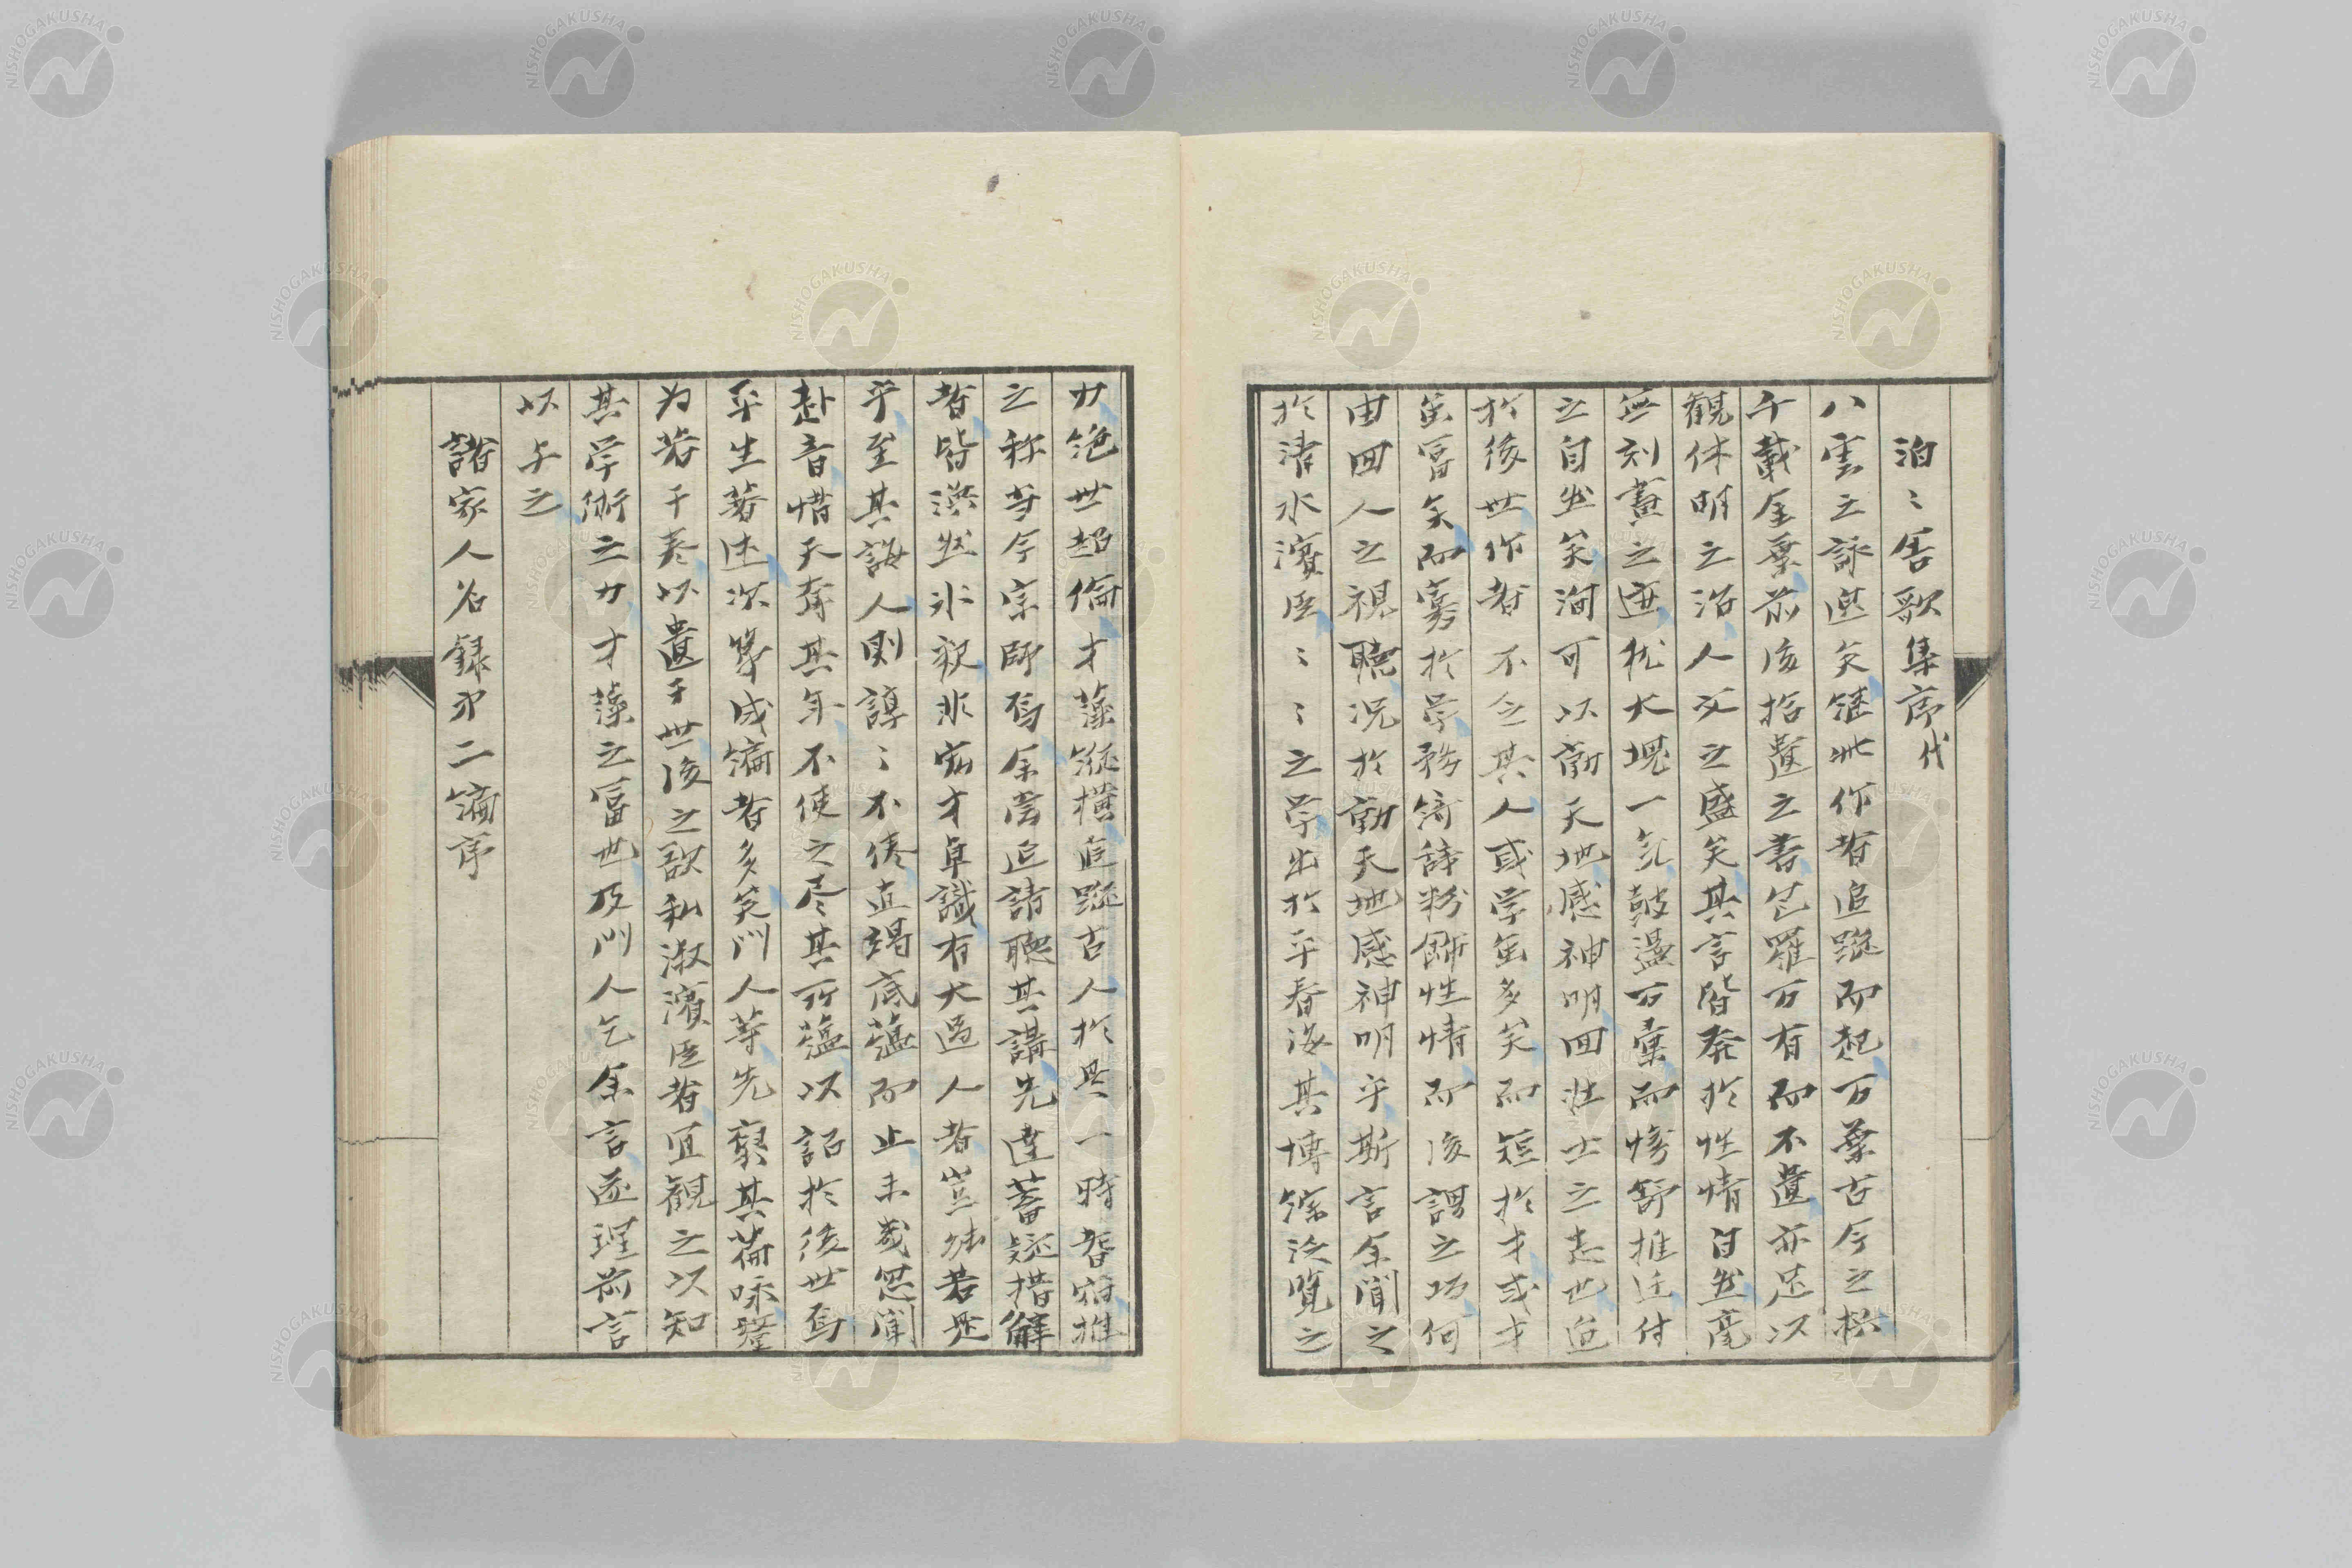 泊〻舍歌集序代
八雲之詠邈矣継此作者追蹤而起万葉古今之撰
千載金葉前後拾遺之書包羅万有而不遺亦足以
観休明之治人文之盛矣其言皆発於性情自然毫
無刻畫之迹猶大塊一気鼓盪万彙而惨舒推迁付
之自然矣洵可以動天地感神明回壮士之志也迨
於後世作者不乏其人或学富多矣而短於才或才
富矣而窮於学務綺辞粉飾性情而後謂之巧何
由回人之視聴況於動天地感神明乎斯言余聞之
於清水濱臣〻〻之学出於平春海其博綜汎覧之
力絶世超倫才藻縦横追蹤古人於是一時耆宿推
之称当今宗師焉余嘗迎請聴其講先達蓄疑措解
者皆渙然氷釈非宏才卓識有大過人者豈能若是
乎至其誨人則諄〻不倦直竭底蘊而止未幾忽聞
赴音惜天奪其年不使之尽其所蘊以詔於後世焉
平生著述次第成編者多矣門人等先裒其篇咏釐
为若干巻以遺于世後之欲私淑濱臣者宜観之以知
其学術之力才藻之富也及門人乞余言遂理前言
以与之
諸家人名録第二編序
NISHOGAKUSHA